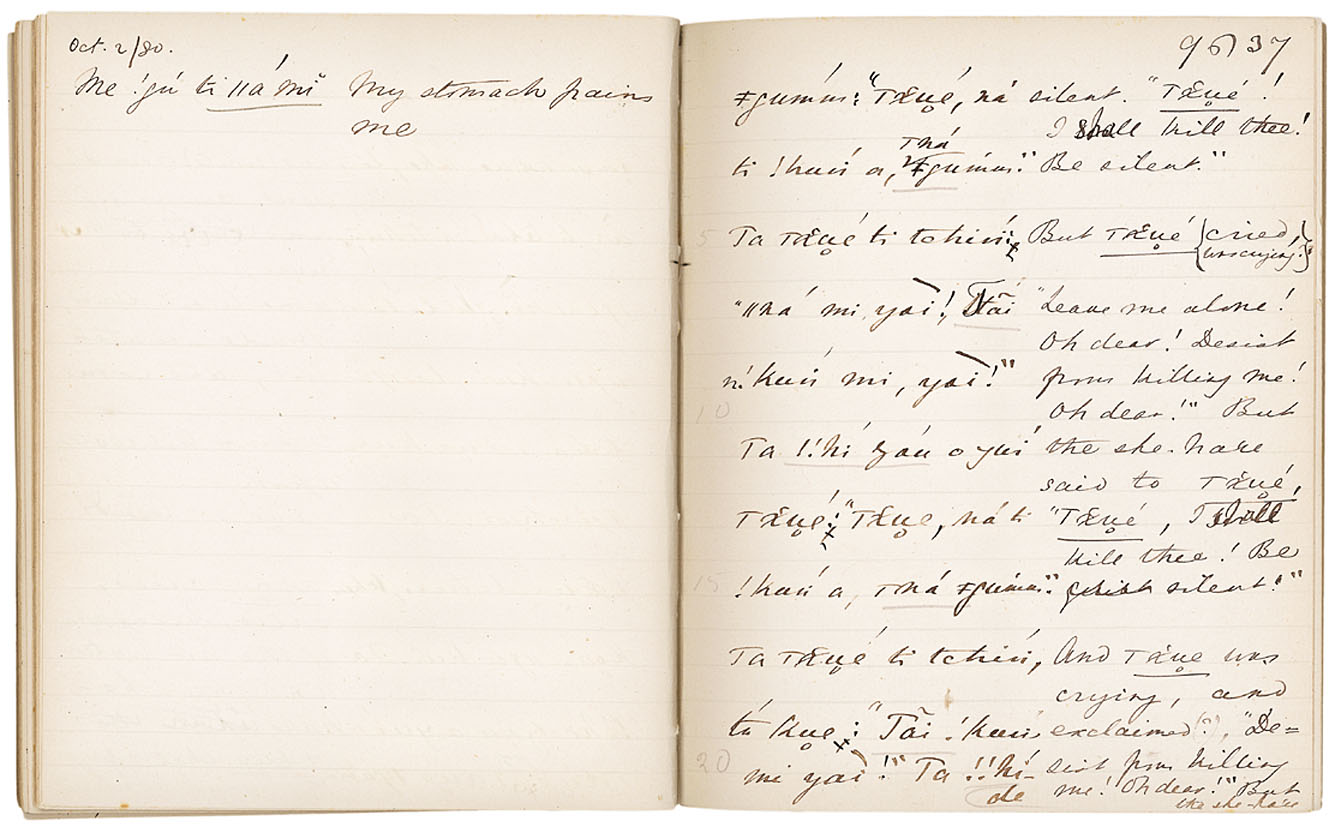 Oct. 2/80.
Me !gú ti ǁá mĭ My stomach pains
me
9 6) 37
ǂgumm: "Tăue, ná silent. "Tăué!
I shall kill thee!
tná
ti !kuń a, ǂgumm." Be silent."
5 Ta Tăué ti tchiń: But Tăué {cried,
was crying:}
"ǁná mi, yai! Tãi "Leave me alone!
Oh dear! Desist
n!kuń mi, yai!" from killing me!
10 Oh dear!" But
Ta !!hí gáu o yuí the she-hare
said to Tăué,
Tăué: "Tăue, ná ti "Tăué, I shall
kill thee! Be
15 !kuń a, tná ǂgumm." silent!"
Ta Tăué ti tchiń, And Tăue was
crying, and
tá kue: "Tãi !kuń exclaimed (?), "De=
20 mi yai!" Ta !!hí- sist from killing
de me! Oh dear!" But
the she-hare